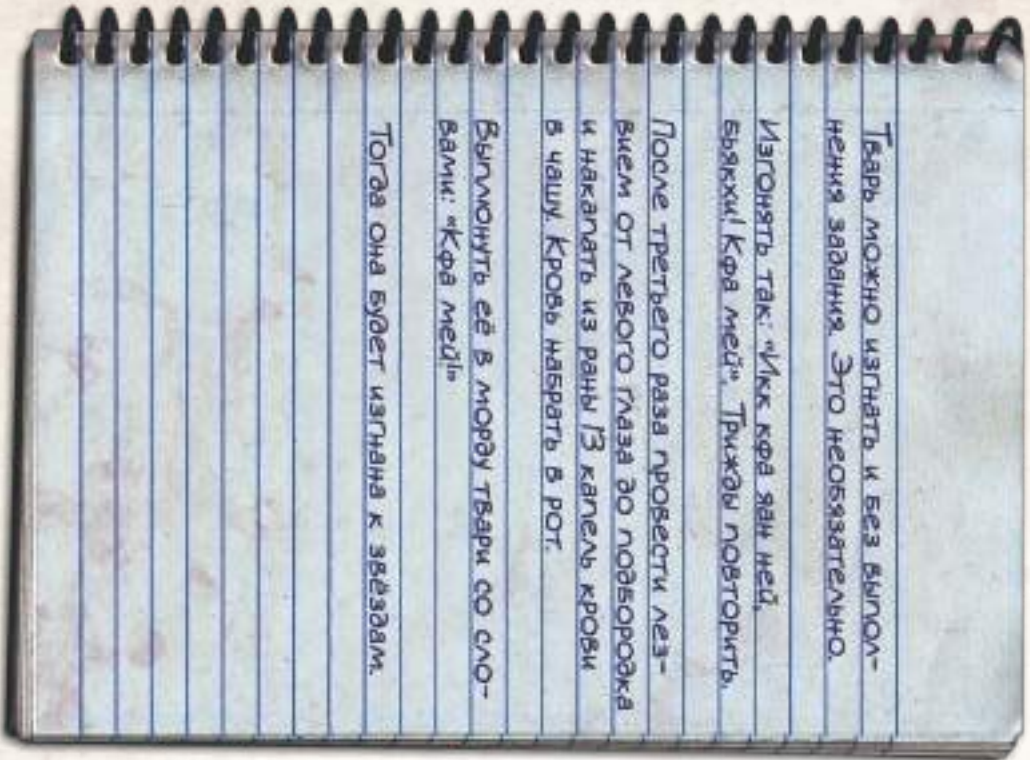 Тварь можно изгнать и без выпол-
нения задания. Это необязательно.
Изгонять так: "Икк кфа яан ней,
бьякхи! Кфа мей". Трижды повторить.
После третьего раза провести лез-
вием от левого глаза до подбородка
и накапать из раны 13 капель крови
в чашу. Кровь набрать в рот.
Выплюнуть её в морду твари со сло-
вами: "Кфа мей!"
Тогда она будет изгнана к звёздам.